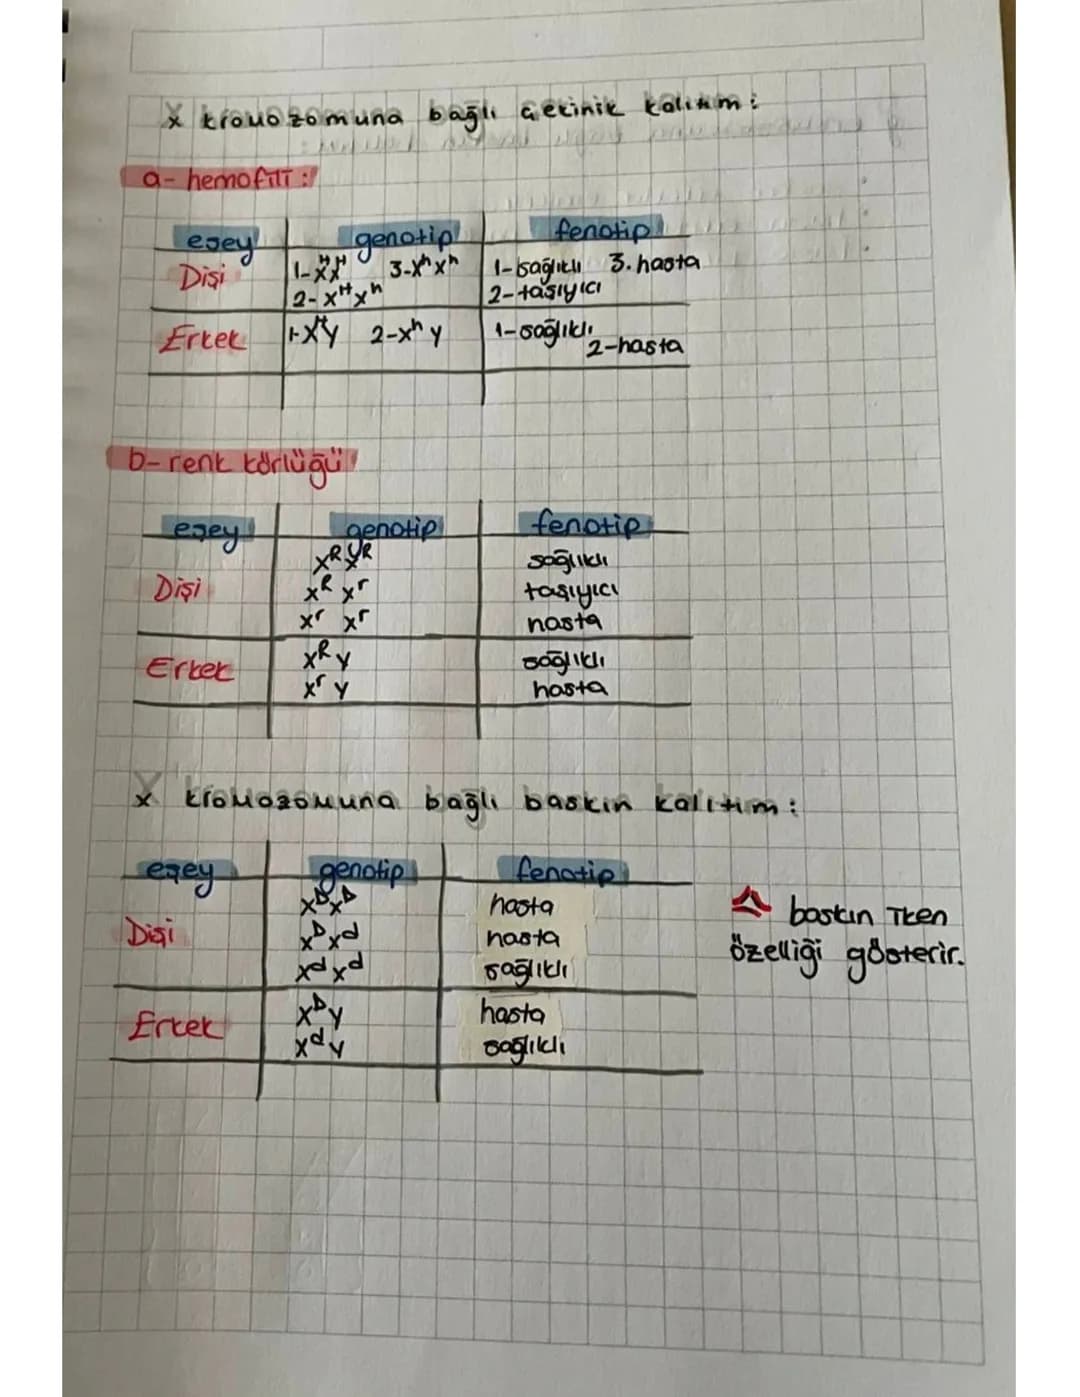 X kromozomuna bağlı çekinik kalıtım:
a- hemofili:
eşey genotip fenotip
Dişi 1-XᴴXᴴ 3-XʰXʰ 1-sağlıklı 3. hasta
2- XᴴXʰ 2-taşıyıcı
Erkek 1-XᴴY 2-Xʰ Y 1-sağlıklı
2-hasta
b- renk körlüğü
eşey genotip fenotip
Xᴿ Xᴿ sağlıklı
Dişi Xᴿ Xʳ taşıyıcı
Xʳ Xʳ hasta
Erkek Xᴿ Y sağlıklı
Xʳ Y hasta
X kromozomuna bağlı baskın kalıtım:
eşey genotip fenotip
XᴰXᴰ hasta
Dişi XᴰXᵈ hasta
XᵈXᵈ sağlıklı
Erkek XᴰY hasta
XᵈY sağlıklı
baskın iken
özelliği gösterir.